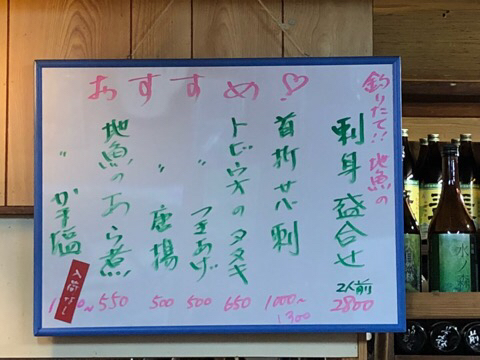 おすすめ♡!
釣りたて!! 地魚の
刺身 盛合せ 2人前 2800
首折サバ刺 1000~1300
トビウオのタタキ 650
〃 つきあげ 500
〃 唐揚 500
地魚のあら煮 550
〃 かま塩
入荷なし